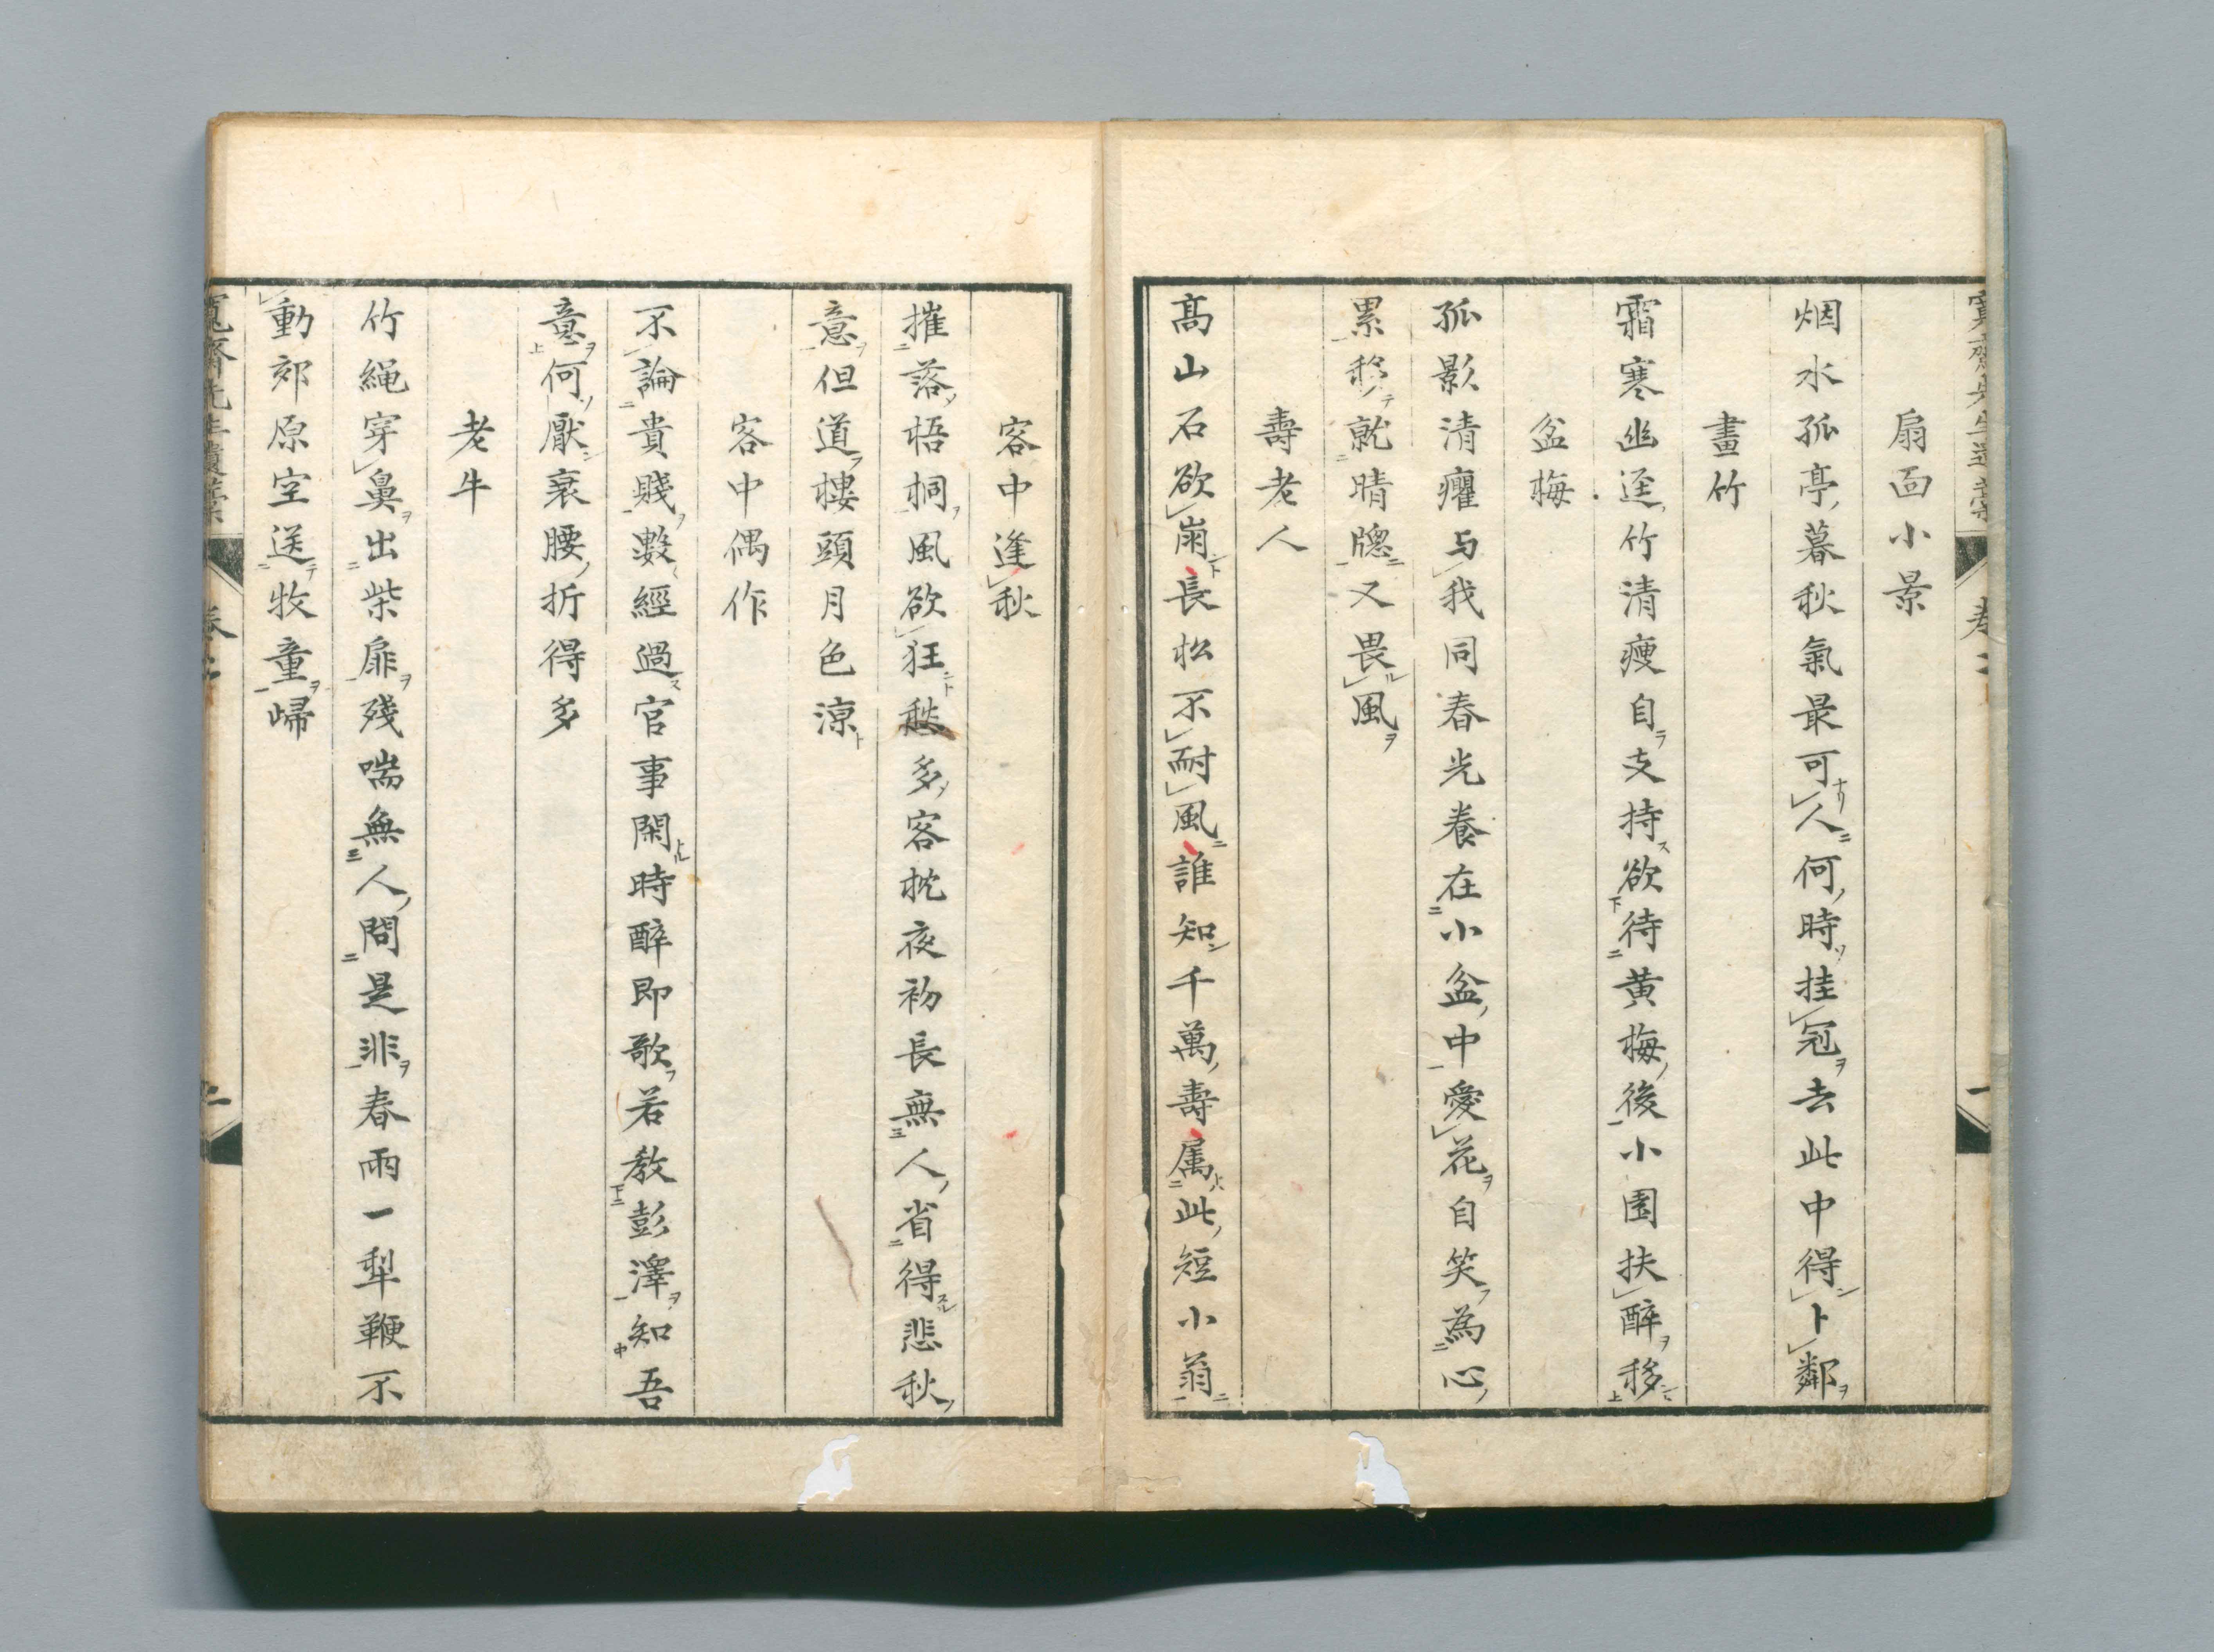 扇面小景
烟水孤亭暮秋氣最可人何時挂冠去此中得卜鄰
畫竹
霜寒幽逕竹清瘦自支持欲待黄梅後小園扶醉移
盆梅
孤影清癯与我同春光養在小盆中愛花自笑為心
累移就晴牕又畏風
壽老人
髙山石欲崩長松不耐風誰知千萬壽属此短小翁
客中逢秋
摧落梧桐風欲狂愁多客枕夜初長無人省得悲秋
意但道樓頭月色涼
客中偶作
不論貴賤數經過官事閑時醉即歌若教彭澤知吾
意何厭衰腰折得多
老牛
竹繩穿鼻出柴扉殘喘無人問是非春雨一犁鞭不
動郊原空送牧童歸
寬齋先生遺藁